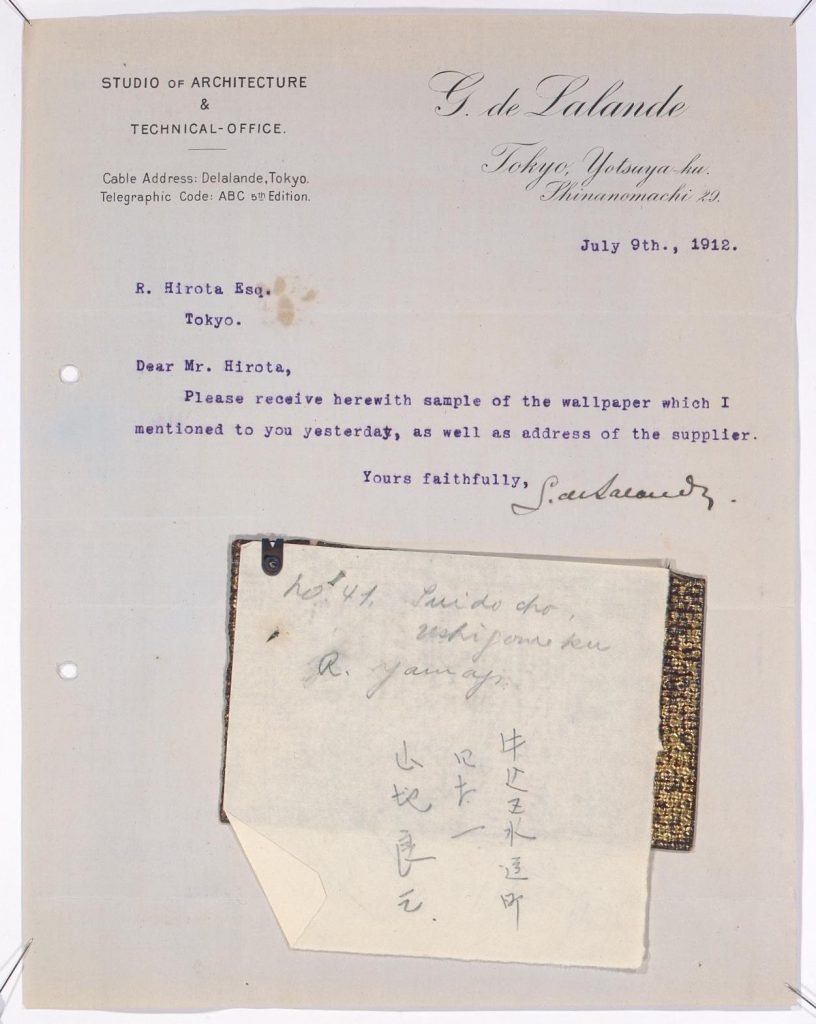 STUDIO OF ARCHITECTURE
&
TECHNICAL-OFFICE.
Cable Address: Delalande, Tokyo.
Telegraphic Code: ABC 5TH Edition.
G. de Lalande
Tokyo, Yotsuya-ku.
Shinanomachi 29.
July 9th., 1912.
R. Hirota Esq.
Tokyo.
Dear Mr. Hirota,
Please receive herewith sample of the wallpaper which I
mentioned to you yesterday, as well as address of the supplier.
Yours faithfully, G. de Lalande.
No 41. Suido cho,
Ushigome ku
R. Yamaji
牛込区水道町
四十一
山地良